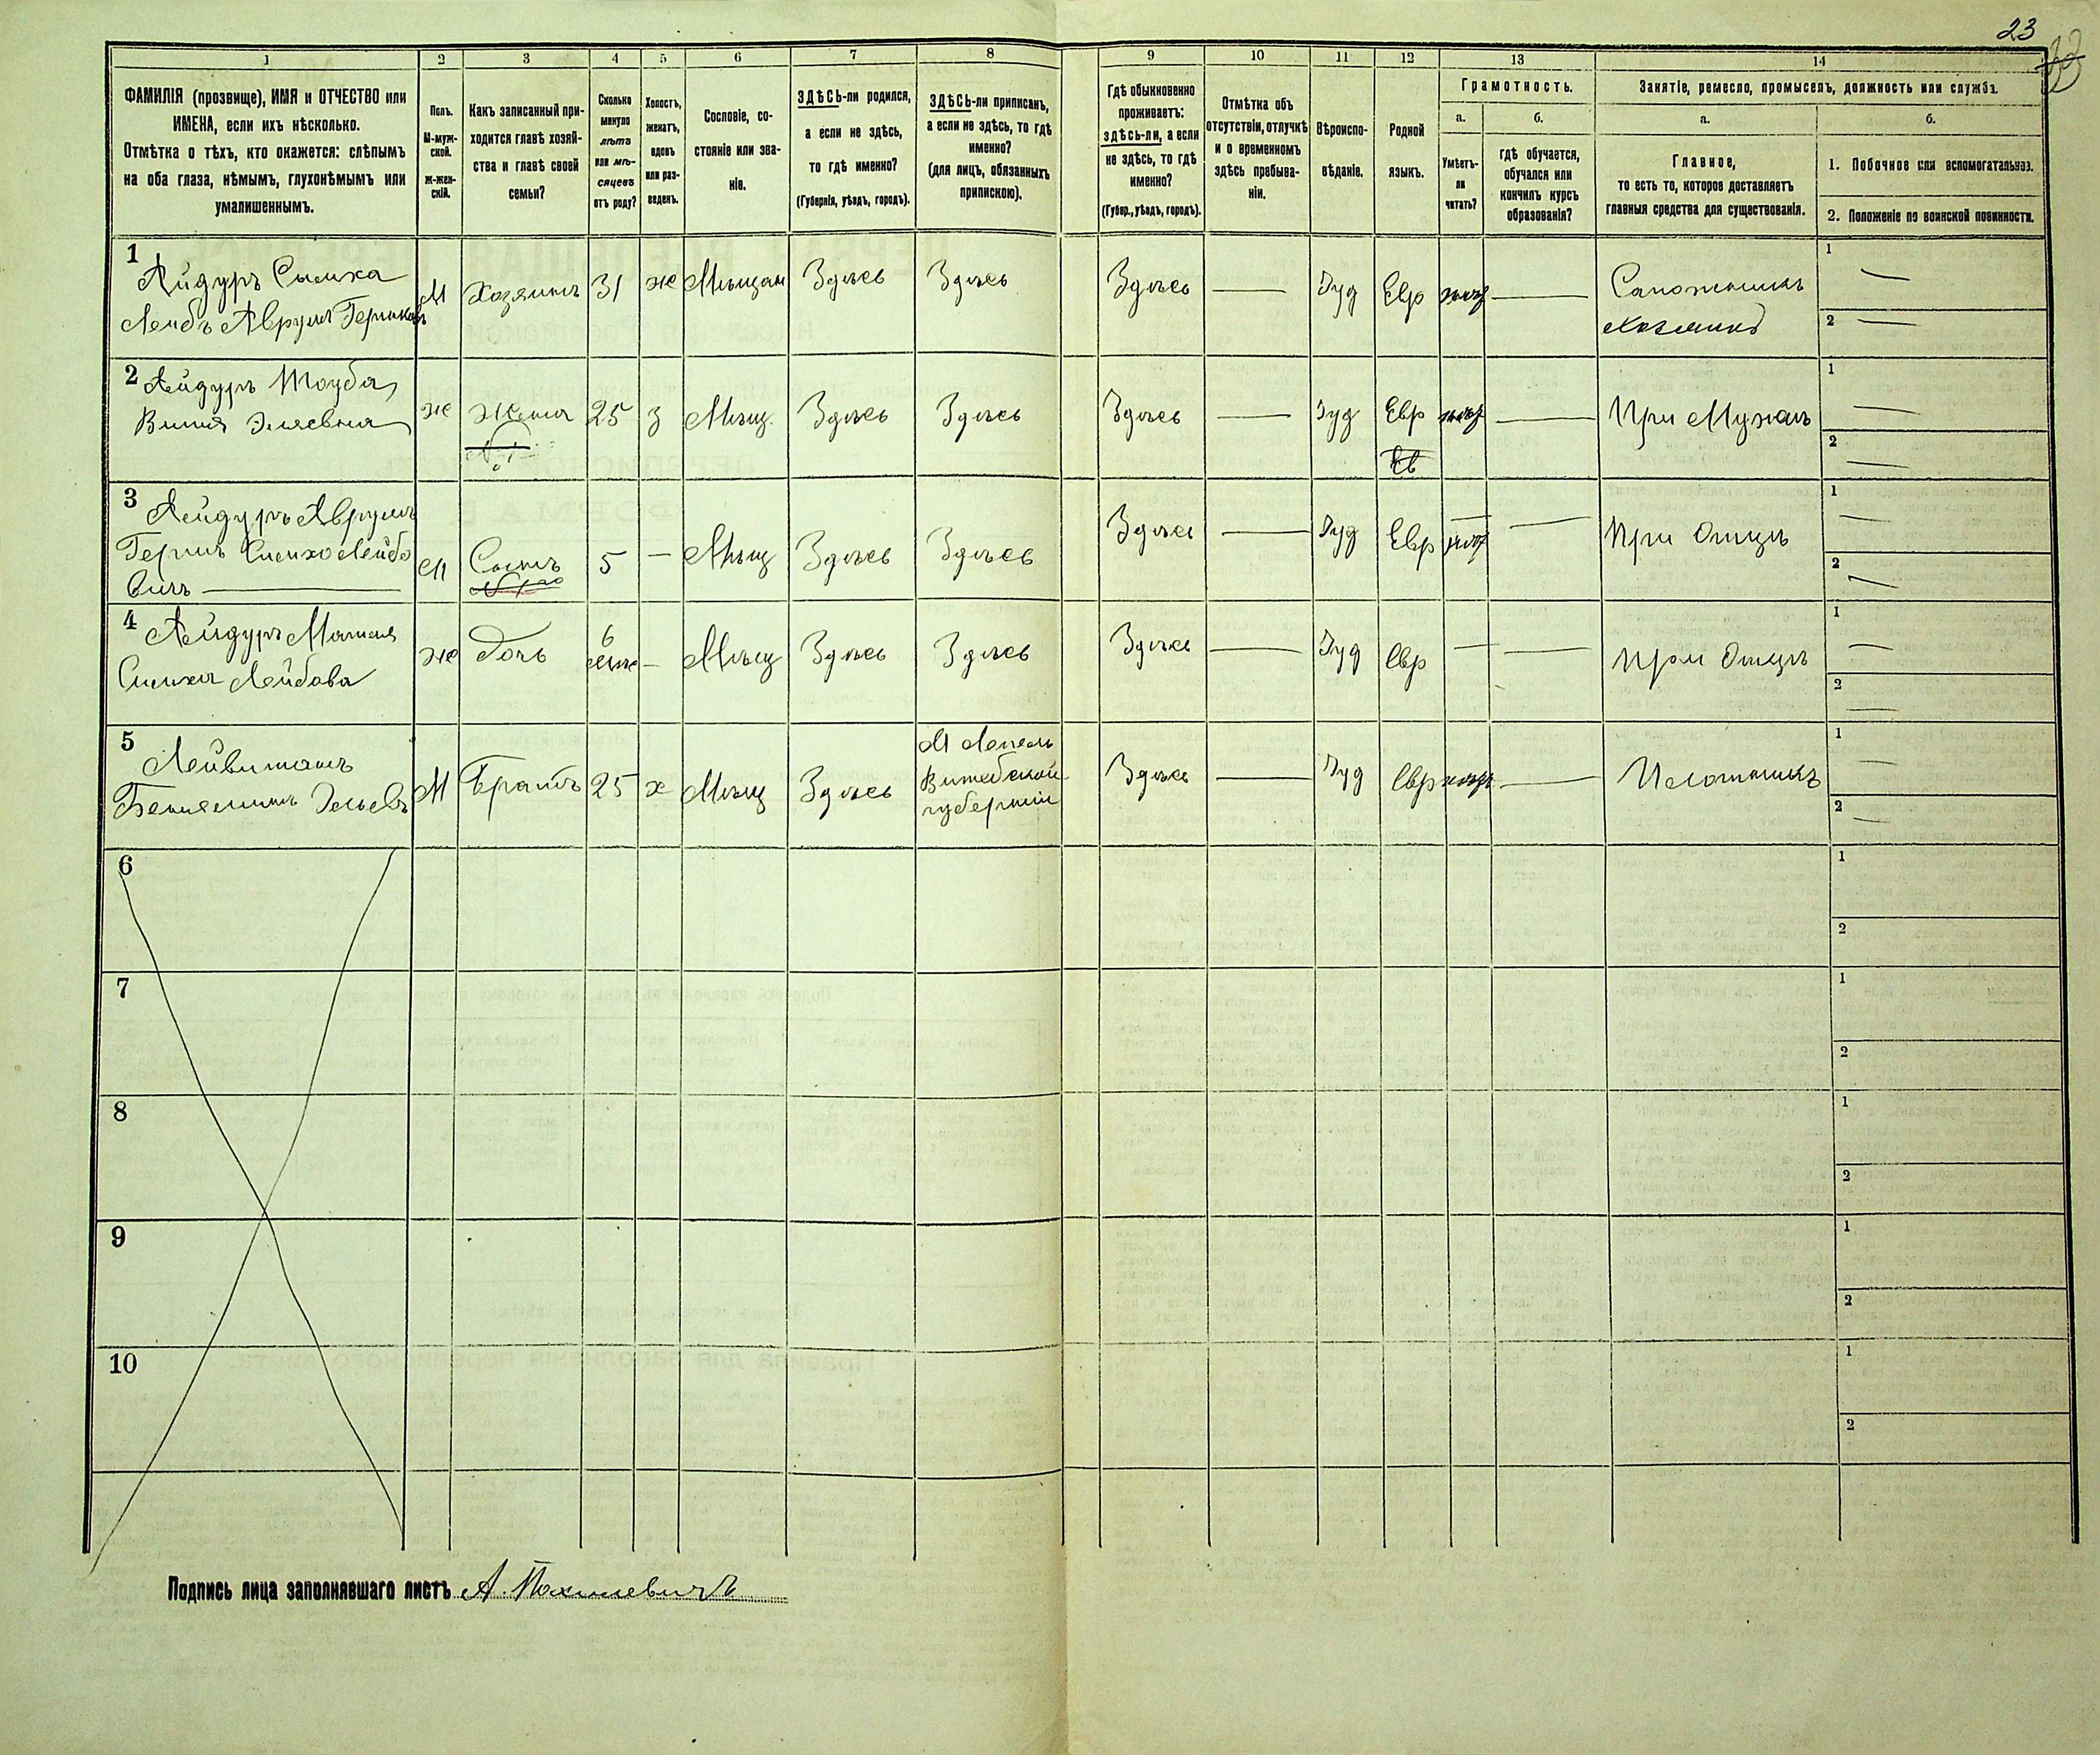 23
1 2 3 4 5 6 7 8 9 10 11 12 13 14
ФАМИЛІЯ (прозвище), ИМЯ и ОТЧЕСТВО или
ИМЕНА, если ихъ нѣсколько.
Отмѣтка о тѣхъ, кто окажется: слѣпымъ
на оба глаза, нѣмымъ, глухонѣмымъ или
умалишеннымъ.
Полъ.
М-муж-
ской.
Ж-жен-
скій.
Какъ записанный при-
ходится главѣ хозяй-
ства и главѣ своей
семьи?
Сколько
минуло
лѣтъ
или мѣ-
сяцевъ
отъ роду?
Холостъ,
женатъ,
вдовъ
или раз-
веденъ.
Сословіе, со-
стояніе или зва-
ніе.
ЗДѢСЬ-ли родился,
а если не здѣсь,
то гдѣ именно?
(Губернія, уѣздъ, городъ).
ЗДѢСЬ-ли приписанъ,
а если не здѣсь, то гдѣ
именно?
(для лицъ, обязанныхъ
припискою).
Гдѣ обыкновенно
проживаетъ:
здѣсь-ли, а если
не здѣсь, то гдѣ
именно?
(Губер., уѣздъ, городъ).
Отмѣтка объ
отсутствіи, отлучкѣ
и о временномъ
здѣсь пребыва-
ніи.
Вѣроиспо-
вѣданіе.
Родной
языкъ.
Грамотность.
а.
Умѣетъ-
ли
читать?
б.
гдѣ обучается,
обучался или
кончилъ курсъ
образованія?
Занятіе, ремесло, промыселъ, должность или служба.
а.
Главное,
то есть то, которое доставляетъ
главныя средства для существованія.
б.
1. Побочное или вспомогательное.
2. Положеніе по воинской повинности.
1
Айдуръ Симха
Лейбъ Аврумъ Гершковъ
М Хозяинъ 31 ж Мѣщан Здѣсь Здѣсь Здѣсь — Іуд Евр — Сапожникъ
Хозяинъ
1 —
2 —
2 Айдуръ Тауба
Виня Эляевна
ж Жена 25 з Мѣщ. Здѣсь Здѣсь Здѣсь — Іуд Евр — При Мужѣ
Ев
1 —
2 —
3 Айдуръ Аврумъ
Гершъ Симхо Лейбо
вичъ —
М Сынъ 5 — Мѣщ Здѣсь Здѣсь Здѣсь — Іуд Евр — При Отцѣ
1 —
2 —
4 Айдуръ
Симхи Лейбова
ж дочь 6 — Мѣщ Здѣсь Здѣсь Здѣсь — Іуд Евр — — При Отцѣ
1 —
2 —
5
Лейвиманъ
Беньяминъ Эльевъ
М Братъ 25 х Мѣщ Здѣсь
М Лепель
Витебской
губерніи
Здѣсь — Іуд Евр —
1 —
2 —
6
1
2
7
1
2
8
1
2
9
1
2
10
1
2
Подпись лица заполнявшаго листъ А.